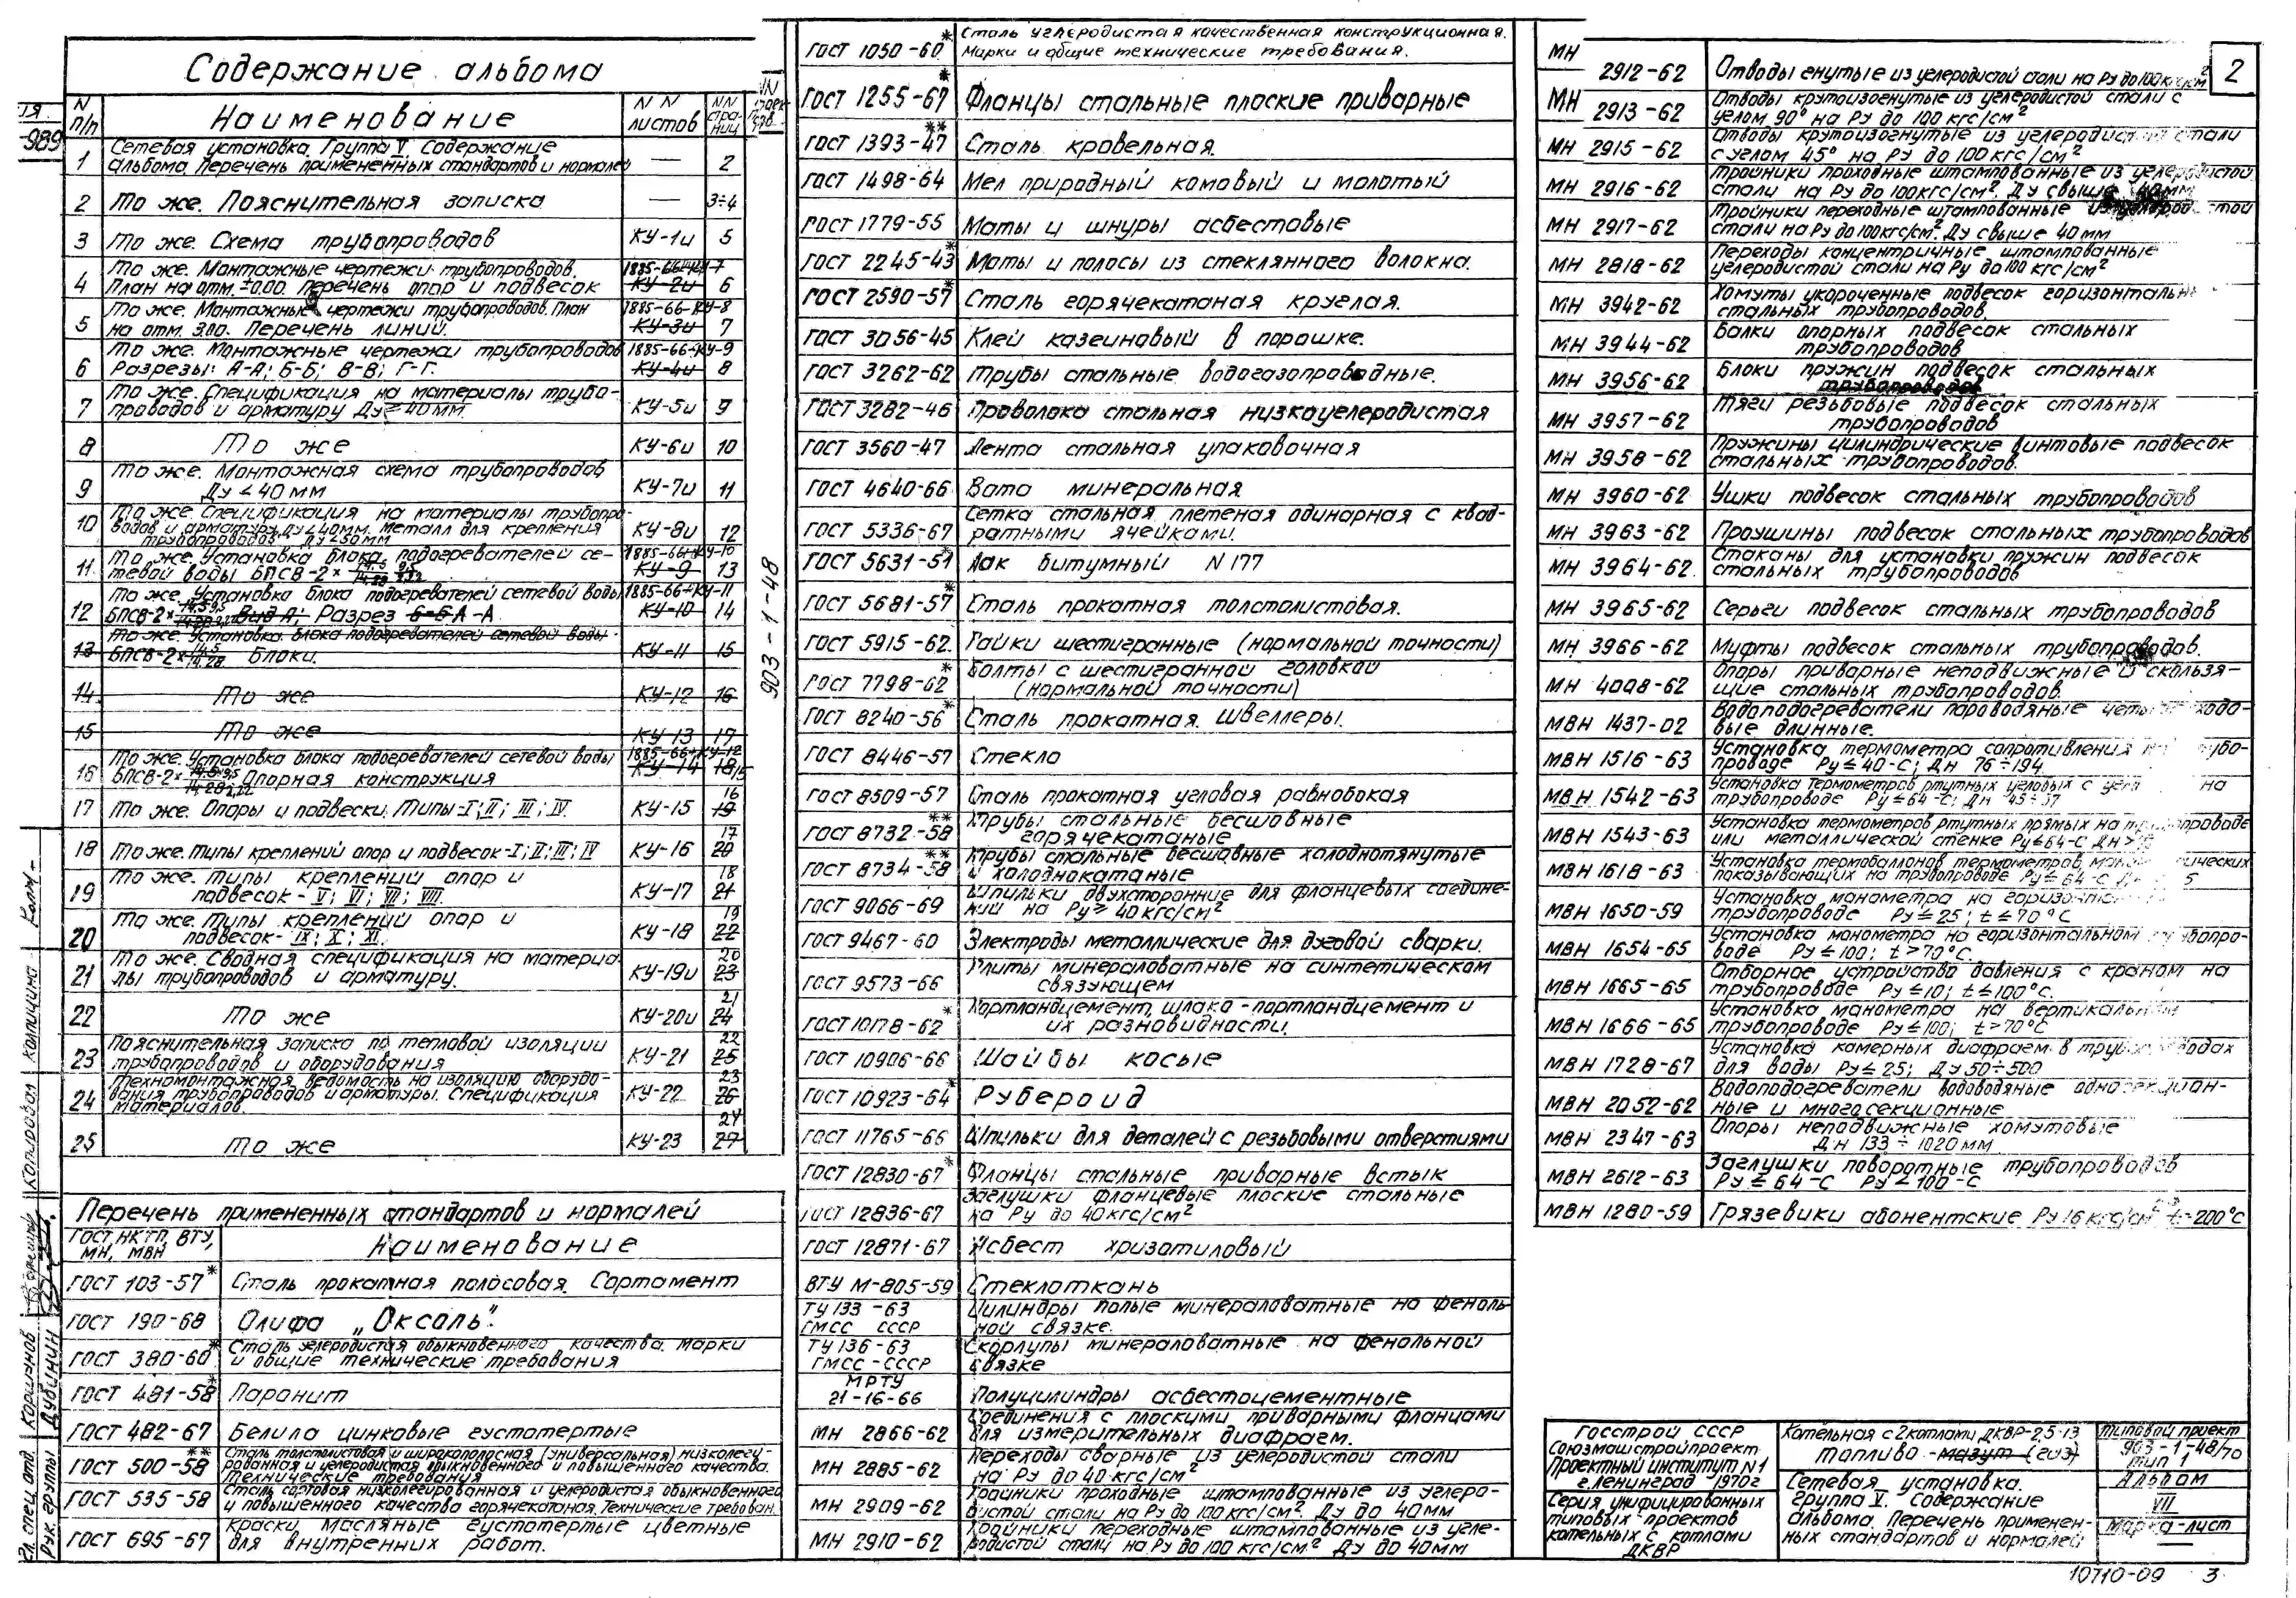 Содержание альбома
N п/п
Наименование
NN листов
NN страниц
1 Сетевая установка. Группа V. Содержание
альбома. Перечень примененных стандартов и нормалей — 2
2 То же. Пояснительная записка — 3÷4
3 То же. Схема трубопроводов КУ-1и 5
4 То же. Монтажные чертежи трубопроводов. 1885-66-КУ-7
План на отм. ±0.00. Перечень опор и подвесок КУ-2и 6
5 То же. Монтажные чертежи трубопроводов. План 1885-66-КУ-8
на отм. 3.00. Перечень линий. КУ-3и 7
6 То же. Монтажные чертежи трубопроводов 1885-66-КУ-9
Разрезы: А-А; Б-Б; В-В; Г-Г. КУ-4и 8
7 То же. Спецификация на материалы трубо-
проводов и арматуру Ду ≥ 40мм. КУ-5и 9
8 То же КУ-6и 10
9 То же. Монтажная схема трубопроводов
Ду ≤ 40мм КУ-7и 11
10 То же. Спецификация на материалы трубопро-
водов и арматуру Ду ≤ 40мм. Металл для крепления
трубопроводов Ду ≥ 50мм КУ-8и 12
11 То же. Установка блока подогревателей се- 1885-66-КУ-10
тевой воды БПСВ-2× КУ-9 13
12 То же. Установка блока подогревателей сетевой воды 1885-66-КУ-11
БПСВ-2× Вид А; Разрез Б-Б А-А КУ-10 14
13 То же. Установка блока подогревателей сетевой воды
БПСВ-2× 14.5/14.28 Блоки. КУ-11 15
14 То же КУ-12 16
15 То же КУ-13 17
16 То же. Установка блока подогревателей сетевой воды 1885-66-КУ-12
БПСВ-2× Опорная конструкция КУ-14 18 15
17 То же. Опоры и подвески. Типы-I; II; III; IV. КУ-15 19 16
18 То же. Типы креплений опор и подвесок-I; II; III; IV КУ-16 20 17
19 То же. Типы креплений опор и
подвесок - V; VI; VII; VIII. КУ-17 21 18
20 То же. Типы креплений опор и
подвесок - IX; X; XI. КУ-18 22 19
21 То же. Сводная спецификация на материа-
лы трубопроводов и арматуру. КУ-19и 23 20
22 То же КУ-20и 24 21
23 Пояснительная записка по тепловой изоляции
трубопроводов и оборудования КУ-21 25 22
24 Техномонтажная ведомость на изоляцию оборудо-
вания трубопроводов и арматуры. Спецификация
материалов КУ-22 26 23
25 То же КУ-23 27 24
Перечень примененных стандартов и нормалей
ГОСТ, НКТП, ВТУ,
МН, МВН
Наименование
ГОСТ 103-57* Сталь прокатная полосовая. Сортамент
ГОСТ 190-68 Олифа „Оксоль“.
ГОСТ 380-60* Сталь углеродистая обыкновенного качества. Марки
и общие технические требования
ГОСТ 481-58* Паронит
ГОСТ 482-67 Белила цинковые густотертые
ГОСТ 500-58** Сталь толстолистовая и широкополосная (универсальная) низколеги-
рованная и углеродистая обыкновенного и повышенного качества.
Технические требования
ГОСТ 535-58 Сталь сортовая низколегированная и углеродистая обыкновенного
и повышенного качества горячекатаная. Технические требован.
ГОСТ 695-67 Краски масляные густотертые цветные
для внутренних работ.
903-1-48
ГОСТ 1050-60* Сталь углеродистая качественная конструкционная.
Марки и общие технические требования.
ГОСТ 1255-67* Фланцы стальные плоские приварные
ГОСТ 1393-47** Сталь кровельная.
ГОСТ 1498-64 Мел природный комовый и молотый
ГОСТ 1779-55 Маты и шнуры асбестовые
ГОСТ 2245-43* Маты и полосы из стеклянного волокна.
ГОСТ 2590-57* Сталь горячекатаная круглая.
ГОСТ 3056-45 Клей казеиновый в порошке.
ГОСТ 3262-62 Трубы стальные водогазопроводные.
ГОСТ 3282-46 Проволока стальная низкоуглеродистая
ГОСТ 3560-47 Лента стальная упаковочная
ГОСТ 4640-66 Вата минеральная
ГОСТ 5336-67 Сетка стальная плетеная одинарная с квад-
ратными ячейками.
ГОСТ 5631-51* Лак битумный N 177
ГОСТ 5681-57* Сталь прокатная толстолистовая.
ГОСТ 5915-62 Гайки шестигранные (нормальной точности)
ГОСТ 7798-62* Болты с шестигранной головкой
(нормальной точности)
ГОСТ 8240-56* Сталь прокатная. Швеллеры.
ГОСТ 8446-57 Стекло
ГОСТ 8509-57 Сталь прокатная угловая равнобокая
ГОСТ 8732-58** Трубы стальные бесшовные
горячекатаные
ГОСТ 8734-58** Трубы стальные бесшовные холоднотянутые
и холоднокатаные
ГОСТ 9066-69 Шпильки двухсторонние для фланцевых соедине-
ний на Ру ≥ 40кгс/см²
ГОСТ 9467-60 Электроды металлические для дуговой сварки.
ГОСТ 9573-66 Плиты минераловатные на синтетическом
связующем
ГОСТ 10178-62* Портландцемент, шлако-портландцемент и
их разновидности.
ГОСТ 10906-66 Шайбы косые
ГОСТ 10923-64* Рубероид
ГОСТ 11765-66 Шпильки для деталей с резьбовыми отверстиями
ГОСТ 12830-67* Фланцы стальные приварные встык
ГОСТ 12836-67 Заглушки фланцевые плоские стальные
на Ру до 40кгс/см²
ГОСТ 12871-67 Асбест хризотиловый
ВТУ М-805-59 Стеклоткань
ТУ 133-63
ГМСС СССР
Цилиндры полые минераловатные на феноль-
ной связке.
ТУ 136-63
ГМСС-СССР
Скорлупы минераловатные на фенольной
связке
МРТУ
21-16-66 Полуцилиндры асбестоцементные
МН 2866-62 Соединения с плоскими приварными фланцами
для измерительных диафрагм.
МН 2885-62 Переходы сварные из углеродистой стали
на Ру до 40кгс/см²
МН 2909-62 Тройники проходные штампованные из углеро-
дистой стали на Ру до 100кгс/см². Ду до 40мм
МН 2910-62 Тройники переходные штампованные из угле-
родистой стали на Ру до 100 кгс/см². Ду до 40мм
2
МН 2912-62 Отводы гнутые из углеродистой стали на Ру до 100кгс/см²
МН 2913-62 Отводы крутоизогнутые из углеродистой стали с
углом 90° на Ру до 100 кгс/см²
МН 2915-62 Отводы крутоизогнутые из углеродистой стали
с углом 45° на Ру до 100кгс/см²
МН 2916-62 Тройники проходные штампованные из углеродистой
стали на Ру до 100кгс/см². Ду свыше 40мм
МН 2917-62 Тройники переходные штампованные из углеродистой
стали на Ру до 100кгс/см². Ду свыше 40мм
МН 2818-62 Переходы концентричные штампованные
углеродистой стали на Ру до 100 кгс/см²
МН 3942-62 Хомуты укороченные подвесок горизонтальн
стальных трубопроводов.
МН 3944-62 Балки опорных подвесок стальных
трубопроводов
МН 3956-62 Блоки пружин подвесок стальных
трубопроводов
МН 3957-62 Тяги резьбовые подвесок стальных
трубопроводов
МН 3958-62 Пружины цилиндрические винтовые подвесок
стальных трубопроводов.
МН 3960-62 Ушки подвесок стальных трубопроводов
МН 3963-62 Проушины подвесок стальных трубопроводов
МН 3964-62 Стаканы для установки пружин подвесок
стальных трубопроводов
МН 3965-62 Серьги подвесок стальных трубопроводов
МН 3966-62 Муфты подвесок стальных трубопроводов.
МН 4008-62 Опоры приварные неподвижные и скользя-
щие стальных трубопроводов.
МВН 1437-02 Водоподогреватели пароводяные четырехходо-
вые длинные.
МВН 1516-63 Установка термометра сопротивления на трубо-
проводе Ру ≤ 40-С; Дн 76÷194
МВН 1542-63 Установка термометров ртутных угловых с на
трубопроводе Ру ≤ 64-С; Дн 45÷57
МВН 1543-63 Установка термометров ртутных прямых на трубопроводе
или металлической стенке Ру ≤ 64-С Дн
МВН 1618-63 Установка термобаллонов термометров манометрических
показывающих на трубопроводе Ру ≤ 64-С
МВН 1650-59 Установка манометра на горизонтальном
трубопроводе Ру ≤ 25; t ≤ 70°С
МВН 1654-65 Установка манометра на горизонтальном трубопро-
воде Ру ≤ 100; t > 70°С.
МВН 1665-65 Отборное устройство давления с краном на
трубопроводе Ру ≤ 10; t ≤ 100°С.
МВН 1666-65 Установка манометра на вертикальном
трубопроводе Ру ≤ 100; t > 70°С
МВН 1728-67 Установка камерных диафрагм в трубопроводах
для воды Ру ≤ 25; Ду 50÷500
МВН 2052-62 Водоподогреватели водоводяные односекцион-
ные и многосекционные
МВН 2347-63 Опоры неподвижные хомутовые
Дн 133 ÷ 1020мм
МВН 2612-63 Заглушки поворотные трубопроводов
Ру ≤ 64-С Ру ≤ 100-С
МВН 1280-59 Грязевики абонентские Ру 16 кгс/см² t=200°С
Госстрой СССР
Союзмашстройпроект
Проектный институт N1
г. Ленинград 1970г
Серия унифицированных
типовых проектов
котельных с котлами
ДКВР
Котельная с 2 котлами ДКВР-2,5-13
Топливо - мазут (газ)
Сетевая установка.
Группа V. Содержание
альбома. Перечень применен-
ных стандартов и нормалей
Типовой проект
903-1-48/70
тип 1
Альбом
VII
Марка-лист
—
Гл. спец. отд. Коршунов
Рук. группы Дубинин
Копировал Копицина
10710-09 3